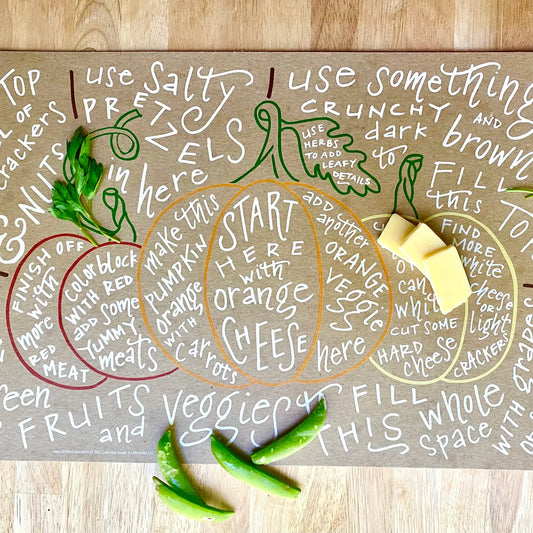 TOP
OF
CRACKERS
& NUTS
use SALTY
PRETZELS
in here
use something
CRUNCHY AND
dark brown
to
FILL
this
USE
HERBS
TO ADD
LEAFY
DETAILS
FINISH OFF
with
more
RED
MEAT
COLORBLOCK
WITH RED
ADD some
YUMMY
meats
make this
PUMPKIN
orange
WITH
carrots
START
HERE
with
orange
CHEESE
add
another
ORANGE
veggie
here
CAN
white
CUT SOME
HARD
cheese
FIND
MORE
white
cheese
OR
light
CRACKERS
FRUITS
and
veggies
FILL
THIS whole
space
WITH